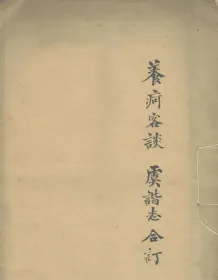 養疴客談 虞諧志合訂